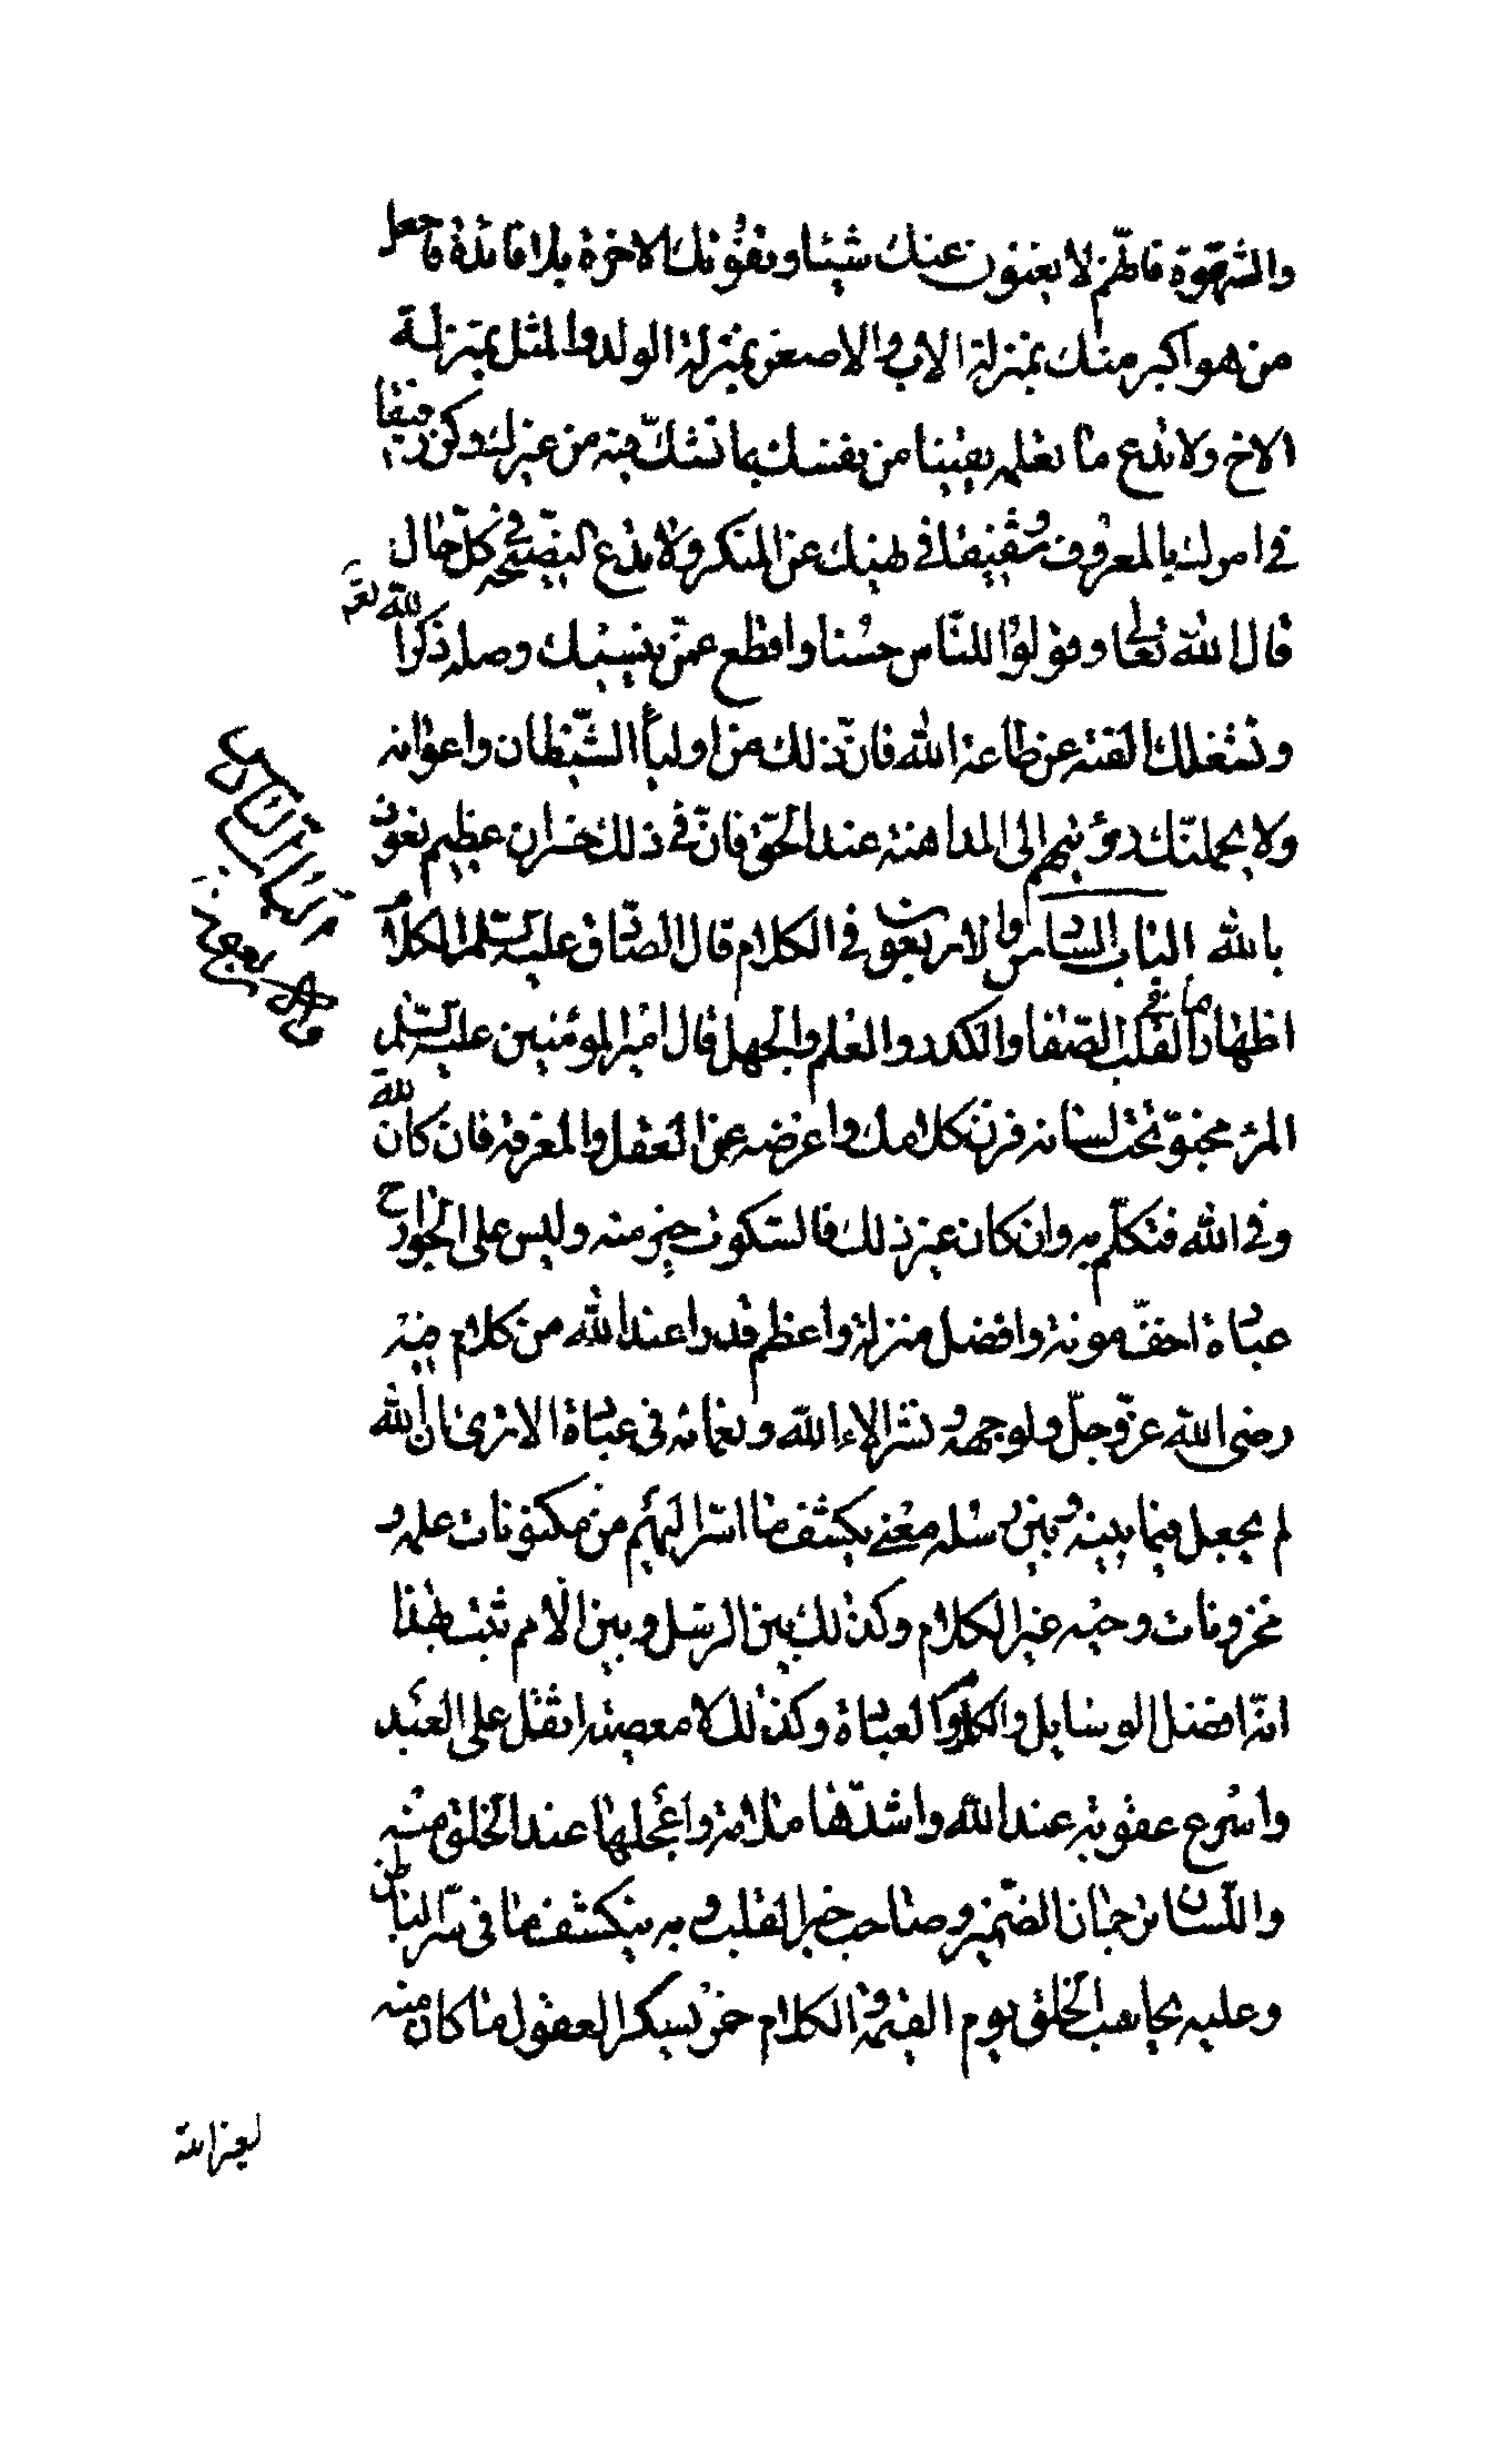 والشهوة فانهم لا يغنون عنك شيئا ويفوتك الاخرة بلا فائدة فاجعل
من هو اكبر منك بمنزلة الاب والاصغر بمنزلة الولد والمثل بمنزلة
الاخ ولا تدع ما تعلمه يقينا من نفسك بما تشك فيه من غيرك وكن رفيقا
في امرك بالمعروف وشفيقا في نهيك عن المنكر ولا تدع النصيحة في كل حال
قال الله تعالى وقولوا للناس حسنا واقطع عمن ينسيك وصله ذكر الله تعالى
وتشغلك الفته عن طاعة الله فان ذلك من اولياء الشيطان واعوانه
ولا يحملنك رؤيتهم الى المداهنة عند الحق فان في ذلك خسران عظيم نعوذ
بالله الباب السادس والاربعون في الكلام قال الصادق عليه السلم الكلام
اظهار ما في القلب الصفا والكدر والعلم والجهل قال امير المؤمنين عليه السلم
المرء مخبو تحت لسانه فزن كلامك واعرضه عن العقل والمعرفة فان كان لله
وفي الله فتكلم به وان كان غير ذلك فالسكوت خير منه وليس على الجوارح
عبادة اخف مونة وافضل منزلة واعظم قدرا عند الله من كلام فيه
رضى الله عز وجل ولوجهه ونشر الاء الله ونعمائه في عباده الا ترى ان الله
لم يجعل فيما بينه وبين رسله معنى يكشف ما اسر اليهم من مكنونات علمه و
مخزونات وحيه غير الكلام وكذلك بين الرسل وبين الامم ثبت بهذا
انه افضل الوسايل والكلام والعبادة وكذلك لا معصية اثقل على العبد
واسرع عقوبة عند الله واشدها ملامة واعجلها عند الخلق منه
واللسان ترجمان الضمير وصاحب خبر القلب وبه ينكشف ما في سر الباطن
وعليه يحاسب الخلق يوم القيمة والكلام خمر يسكر العقول ما كان منه
لغير الله